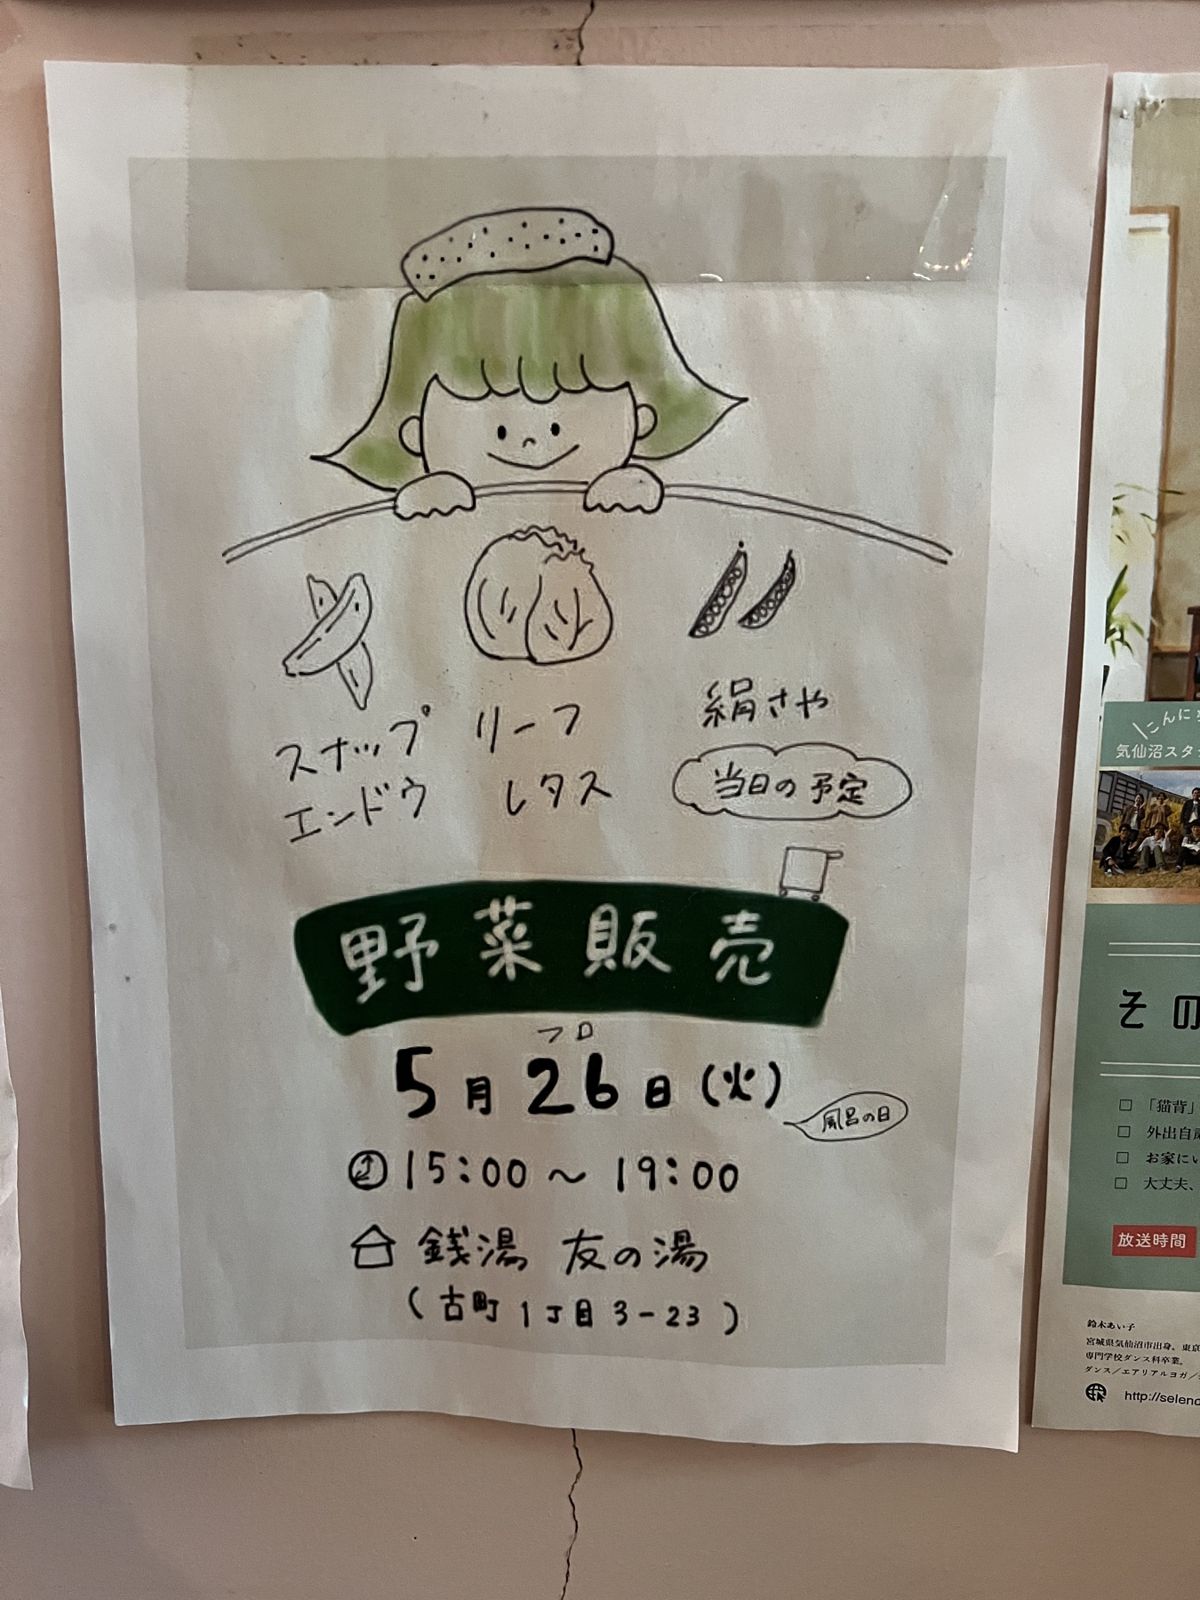 スナップ
エンドウ
リーフ
レタス
絹さや
当日の予定
野菜販売
フロ
5月26日(火)
風呂の日
15:00〜19:00
銭湯 友の湯
(古町1丁目3-23)
こんに
気仙沼スタ
その
□ 「猫背」
□ 外出自
□ お家にい
□ 大丈夫、
放送時間
鈴木あい子
宮城県気仙沼市出身。東京
専門学校ダンス科卒業。
ダンス/エアリアルヨガ/
http://selenc